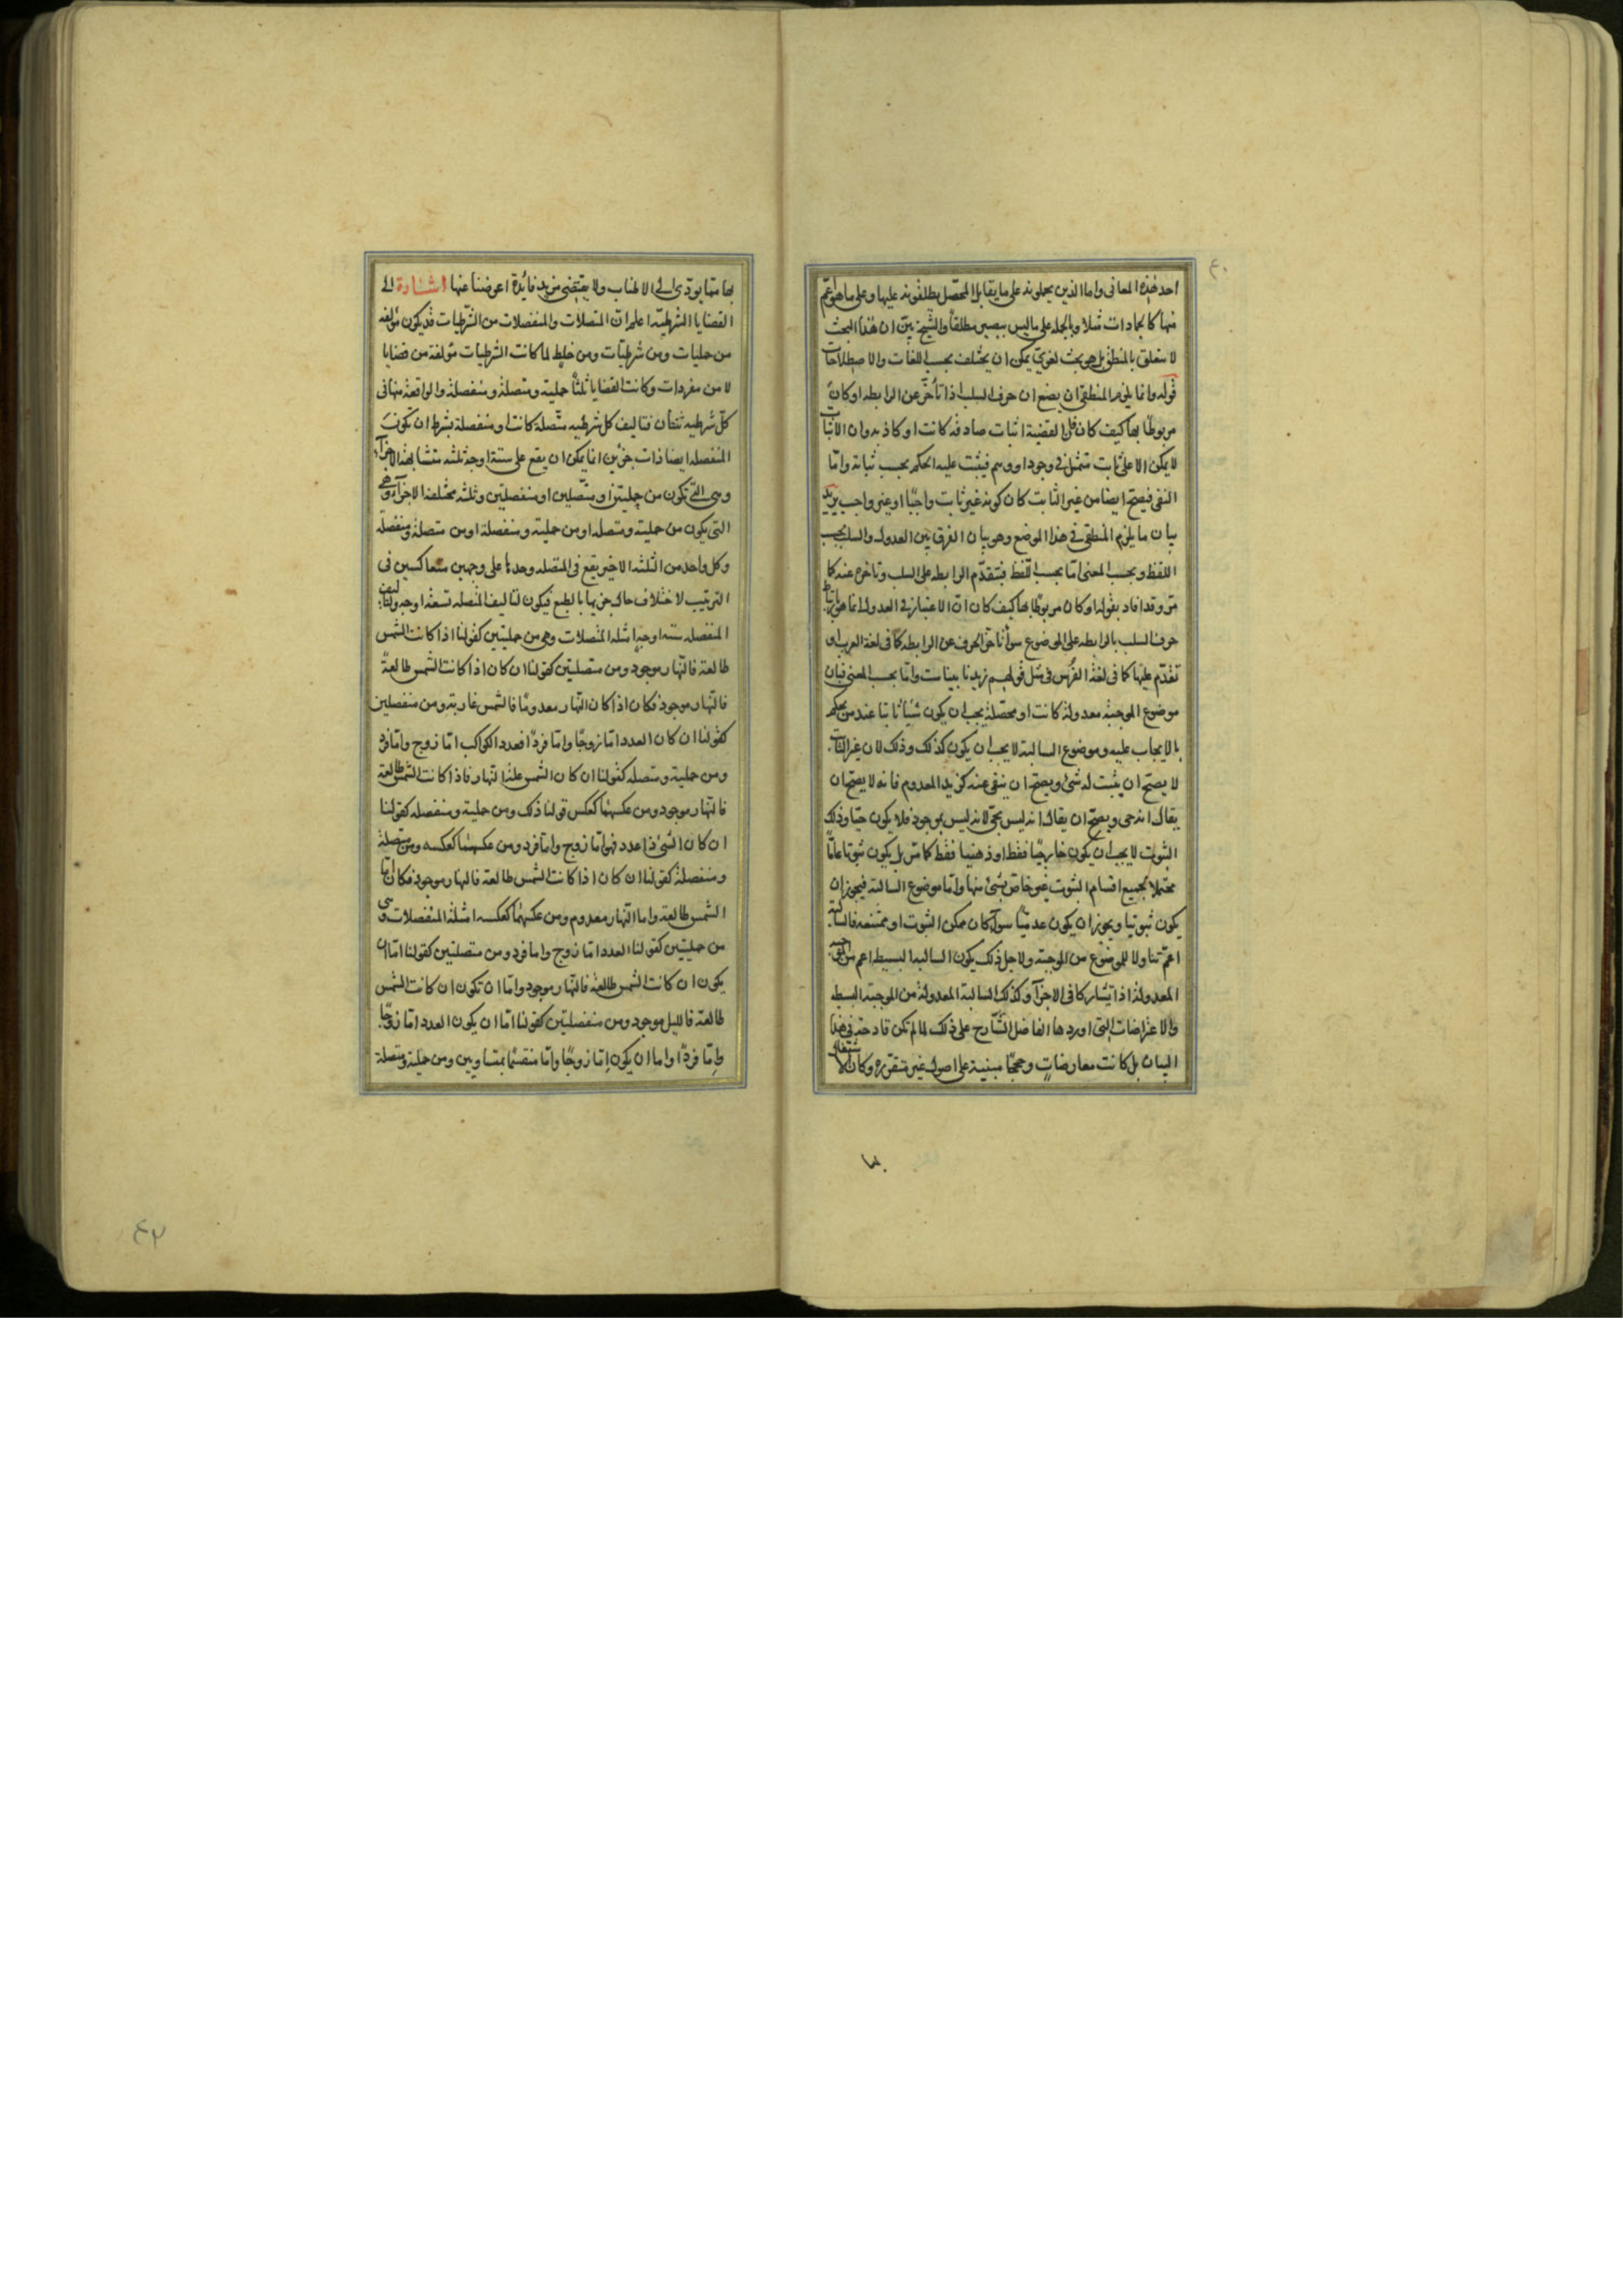 ٤٠
احد هذه المعانى واما الذين يحملونه على ما يقابل المحصّل يطلقونه عليها وعلى ما هو اعمّ
منها كالجمادات مثلا وبالجمله على ما ليس ببصير مطلقاً والشيخ بيّن ان هذا البحث
لا يتعلق بالمنطق بل هو بحث لغوىّ يمكن ان يختلف بحسب اللغات والاصطلاحات
قوله وانما يلزم المنطقى ان يضع ان حرف السلب اذا تأخّر عن الرابطه او كان
مربوطًا بها كيف كان فان القضية اثبات صادقه كانت او كاذبه وان الاثبات
لا يمكن الا على ثابت متمثل فى وجود او وهم فيثبت عليه الحكم بحسب ثباته وامّا
النفى فيصح ايضا من غير الثابت كان كونه غير ثابت واجبًا او غير واجب يريد
بيان ما يلزم المنطقى فى هذا الموضع وهو بيان الفرق بين العدول والسلب بحسب
اللفظ وبحسب المعنى امّا بحسب اللّفظ فبتقدّم الرابطه على السلب وتاخره عنه كما
مرّ وقد افاد بقوله او كان مربوطًا بها كيف كان انّ الاعتبار فى العدول انما هو بارتباط
حرف السلب بالرابطه على الموضوع سواء تاخّر الحرف عن الرابطه كما فى لغة العرب او
تقدّم عليها كما فى لغة الفُرس فى مثل قولهم زيد نا بيناست وامّا بحسب المعنى فبان
موضوع الموجبة معدولة كانت او محصّلة يجب ان يكون شيًا ثابتا عند من يحكم
بالايجاب عليه وموضوع السالبة لا يجب ان يكون كذلك وذلك لان غير الثابت
لا يصح ان يثبت له شئ ويصح ان ينفى عنه كزيد المعدوم فانه لا يصح ان
يقال انه حى ويصحّ ان يقال انه ليس بحىّ لانه ليس بموجود فلا يكون حيّا وذلك
الثبوت لا يجب ان يكون خارجيًا فقط او ذهنيا فقط كما مرّ بل يكون ثبوتا عامًّا
محتملا لجميع اقسام الثبوت غير خاصّ بشئ منها وامّا موضوع السالبة فيجوز ان
يكون ثبوتيا ويجوز ان يكون عدميًّا سواء كان ممكن الثبوت او ممتنعه فالسالبة
اعمّ تناولا للموضوع من الموجبة ولاجل ذلك يكون السالبه البسيطه اعم من الموجبه
المعدولة اذا تشاركا فى الاجزاء وكذلك السالبة المعدولة من الموجبة البسيطه
والاعتراضات التى اوردها الفاضل الشّارح على ذلك لما لم تكن قادحة فى هذا
البيان بل كانت معارضاتٍ وحججًا مبنية على اصول غير متقرّره وكان الاشتغال
بها ممّا يودّى الى الاطناب ولا يقتضى مزيد فائدة اعرضنا عنها اشارة الى
القضايا الشرطيّه اعلم انّ المتصلات والمنفصلات من الشّرطيات قد يكون مؤلفه
من حمليات ومن شرطيّات ومن خلِط لما كانت الشرطيات مؤلفة من قضايا
لا من مفردات وكانت القضايا ثلثًا حملية ومتصلة ومنفصلة والواقعة منها فى
كلّ شرطيه ثنتان فتاليف كل شرطيه متّصلة كانت او منفصلة بشرط ان تكون
المنفصله ايضا ذات جزئين انما يمكن ان يقع على ستة اوجه ثلثه متشابهة الاجزاء
وهى التى تكون من حمليتين او متّصلين او منفصلتين وثلثه مختلفة الاجزاء وهى
التى يكون من حملية ومتصله او من حملية ومنفصلة او من متصلة ومنفصلة
وكل واحد من الثلثه الاخير يقع فى المتصله وحدها على وجهين متعاكسين فى
الترتيب لاختلاف حال جزيها بالطبع فيكون لتاليف المتصله تسعة اوجه ولتاليف
المنفصله ستة اوجه امثله المتصلات وهى من حمليتين كقولنا اذا كانت الشمس
طالعة فالنّهار موجود ومن متصلتين كقولنا ان كان اذا كانت الشمس طالعةً
فالنهار موجود فكان اذا كان النّهار معدومًا فالشمس غاربة ومن منفصلين
كقولنا ان كان العدد امّا زوجًا وامّا فردًا فعدد الكواكب امّا زوج وامّا فرد
ومن حملية ومتصله كقولنا ان كان الشمس علة النهار فاذا كانت الشمس طالعة
فالنهار موجود ومن عكسهما كعكس قولنا ذلك ومن حملية ومنفصله كقولنا
ان كان الشئ ذا عدد فهو امّا زوج وامّا فرد ومن عكسهما كعكسه ومن متصلة
ومنفصلة كقولنا ان كان اذا كانت الشمس طالعة فالنهار موجود فكان امّا
الشمس طالعة واما النّهار معدوم ومن عكسهما كعكسه امثلة المنفصلات وهى
من حمليتين كقولنا العدد امّا زوج واما فرد ومن متصلتين كقولنا امّا ان
يكون ان كانت الشمس طالعة فالنهار موجود وامّا ان تكون ان كانت الشمس
طالعة فالليل موجود ومن منفصلتين كقولنا امّا ان يكون العدد امّا زوجًا
وامّا فردًا واما ان يكون امّا زوجًا وامّا منقسمًا بمتساويين ومن حملية ومتصلة